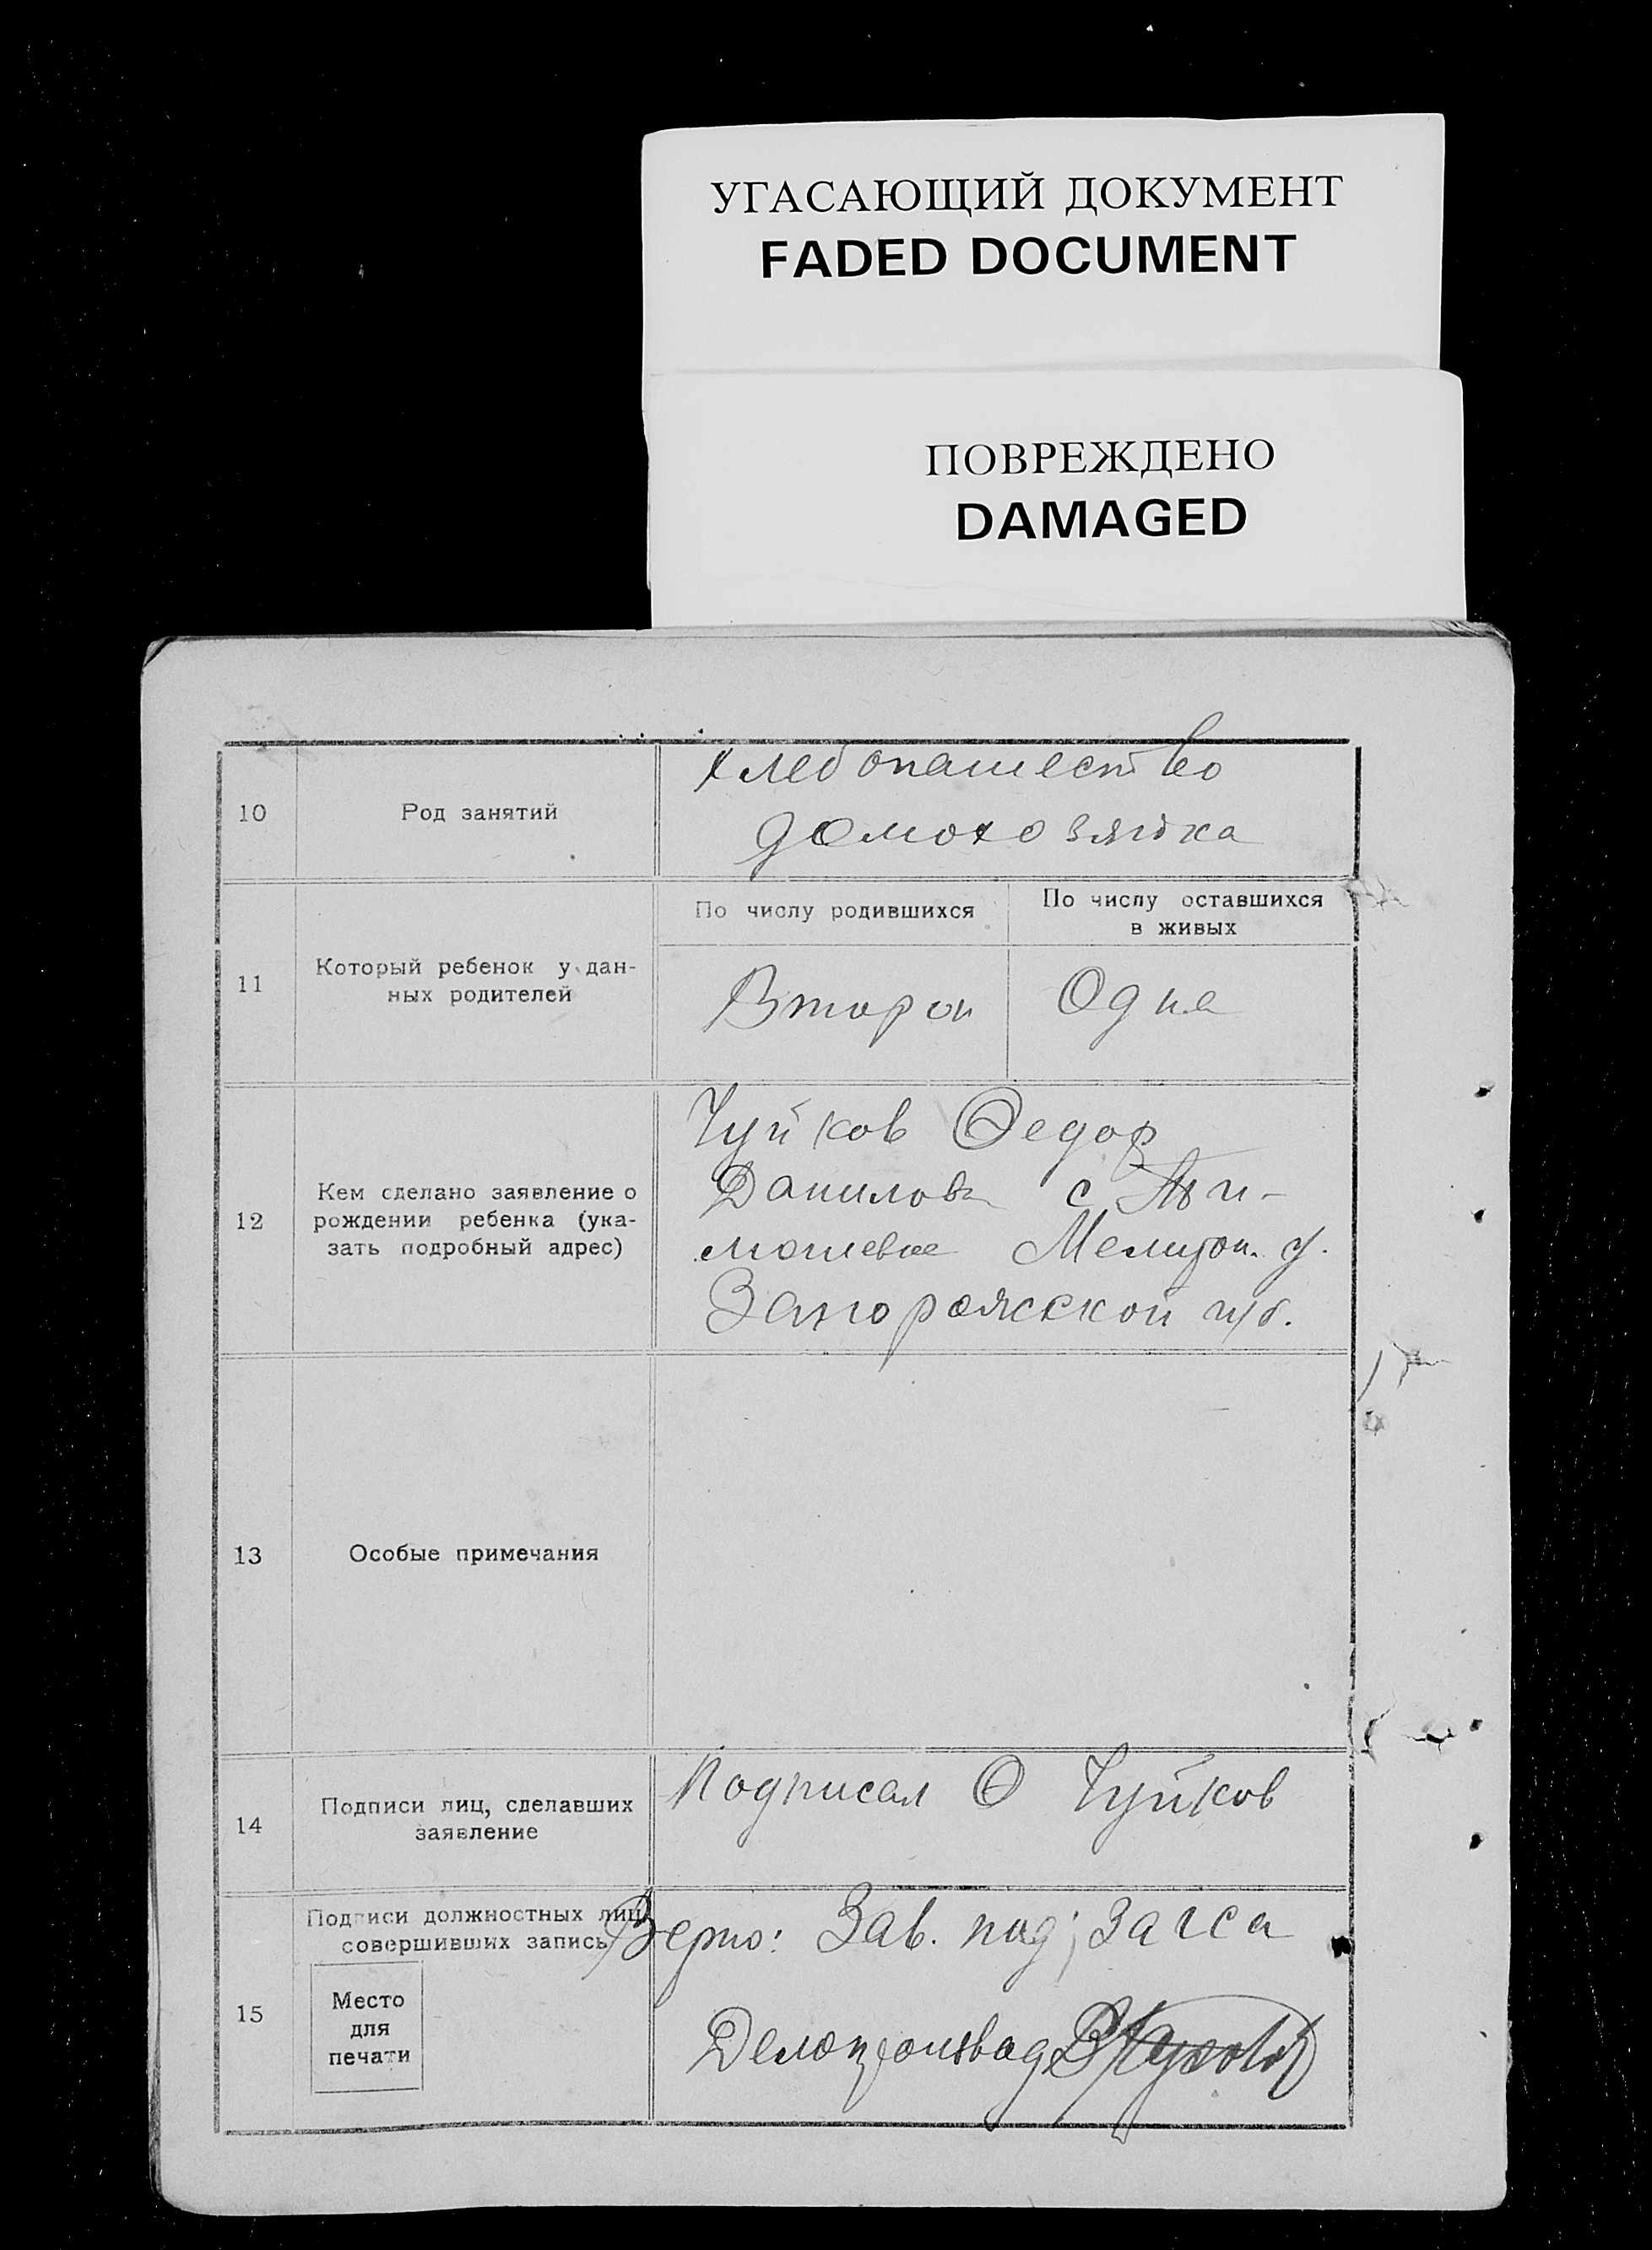 УГАСАЮЩИЙ ДОКУМЕНТ
FADED DOCUMENT
ПОВРЕЖДЕНО
DAMAGED
10
Род занятий
хлебопашество
домохозяйка
11
Который ребенок у дан-
ных родителей
По числу родившихся
По числу оставшихся
в живых
Второй
Одна
12
Кем сделано заявление о
рождении ребенка (ука-
зать подробный адрес)
Чуйков Ѳедор
Данилов с Ти-
мошевке Мелитоп. у.
Запорожской губ.
13
Особые примечания
14
Подписи лиц, сделавших
заявление
Подписал Ѳ Чуйков
15
Подписи должностных лиц,
совершивших запись
Место
для
печати
Верно: Зав. под; Загса
Делопроизвод